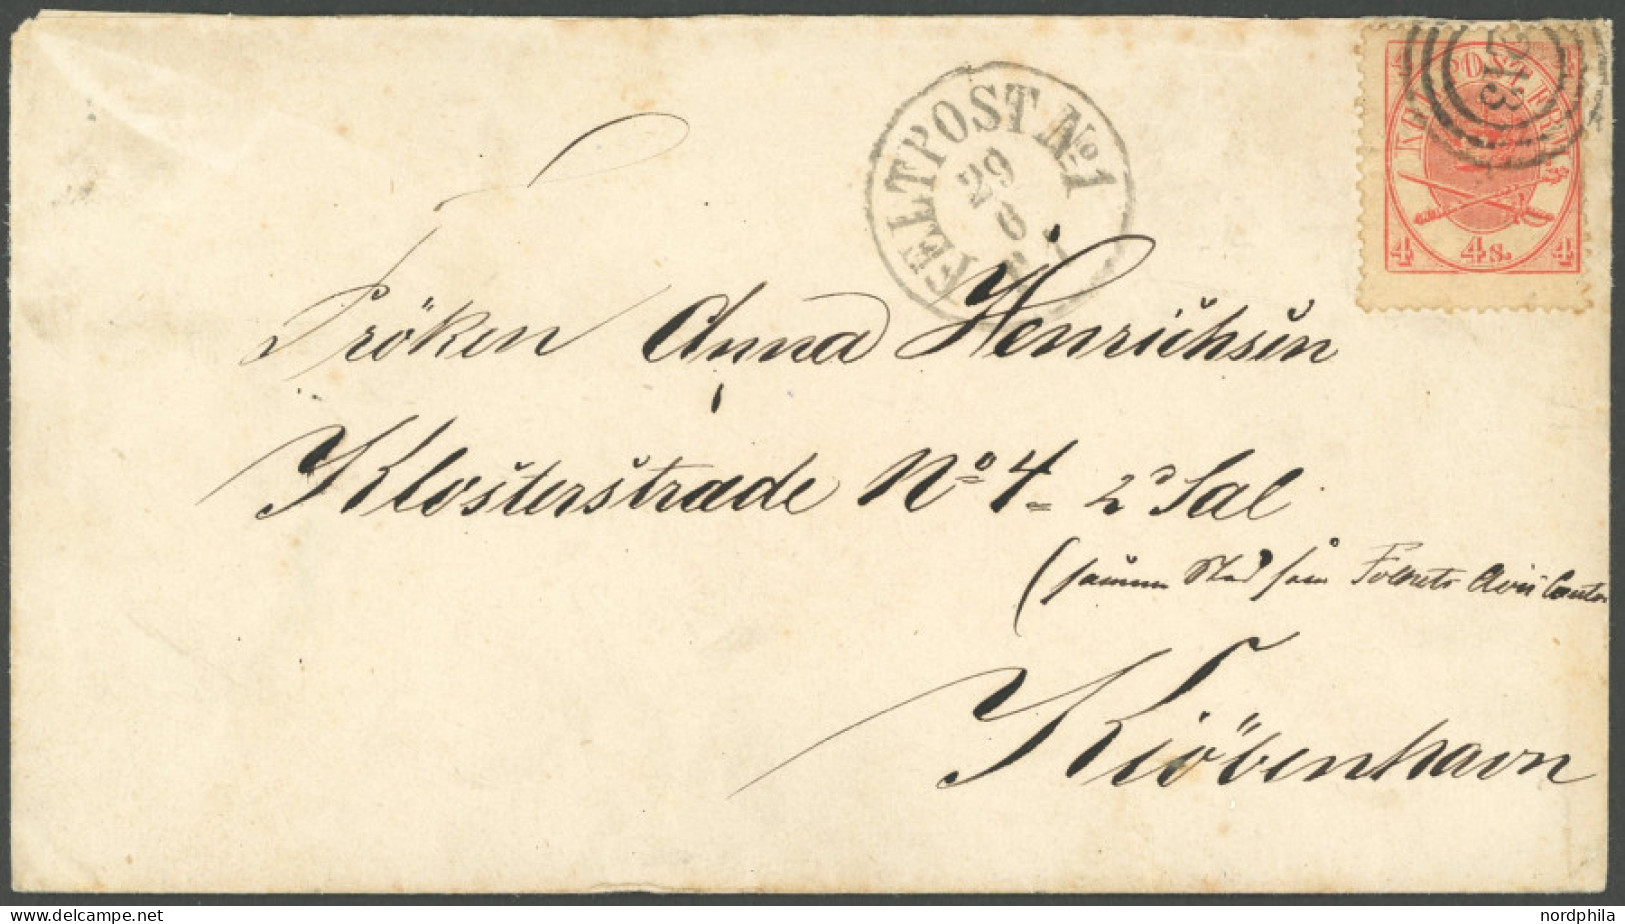 FELTPOST No. 1
29
6
213
KGL POST FRM
4 4s. 4
Fröken Anna Henrichsen
Klosterstræde No 4 - 2d Sal
(samme Sted som Folkets Avis Contor
Kiöbenhavn
www.delcampe.net
nordphila